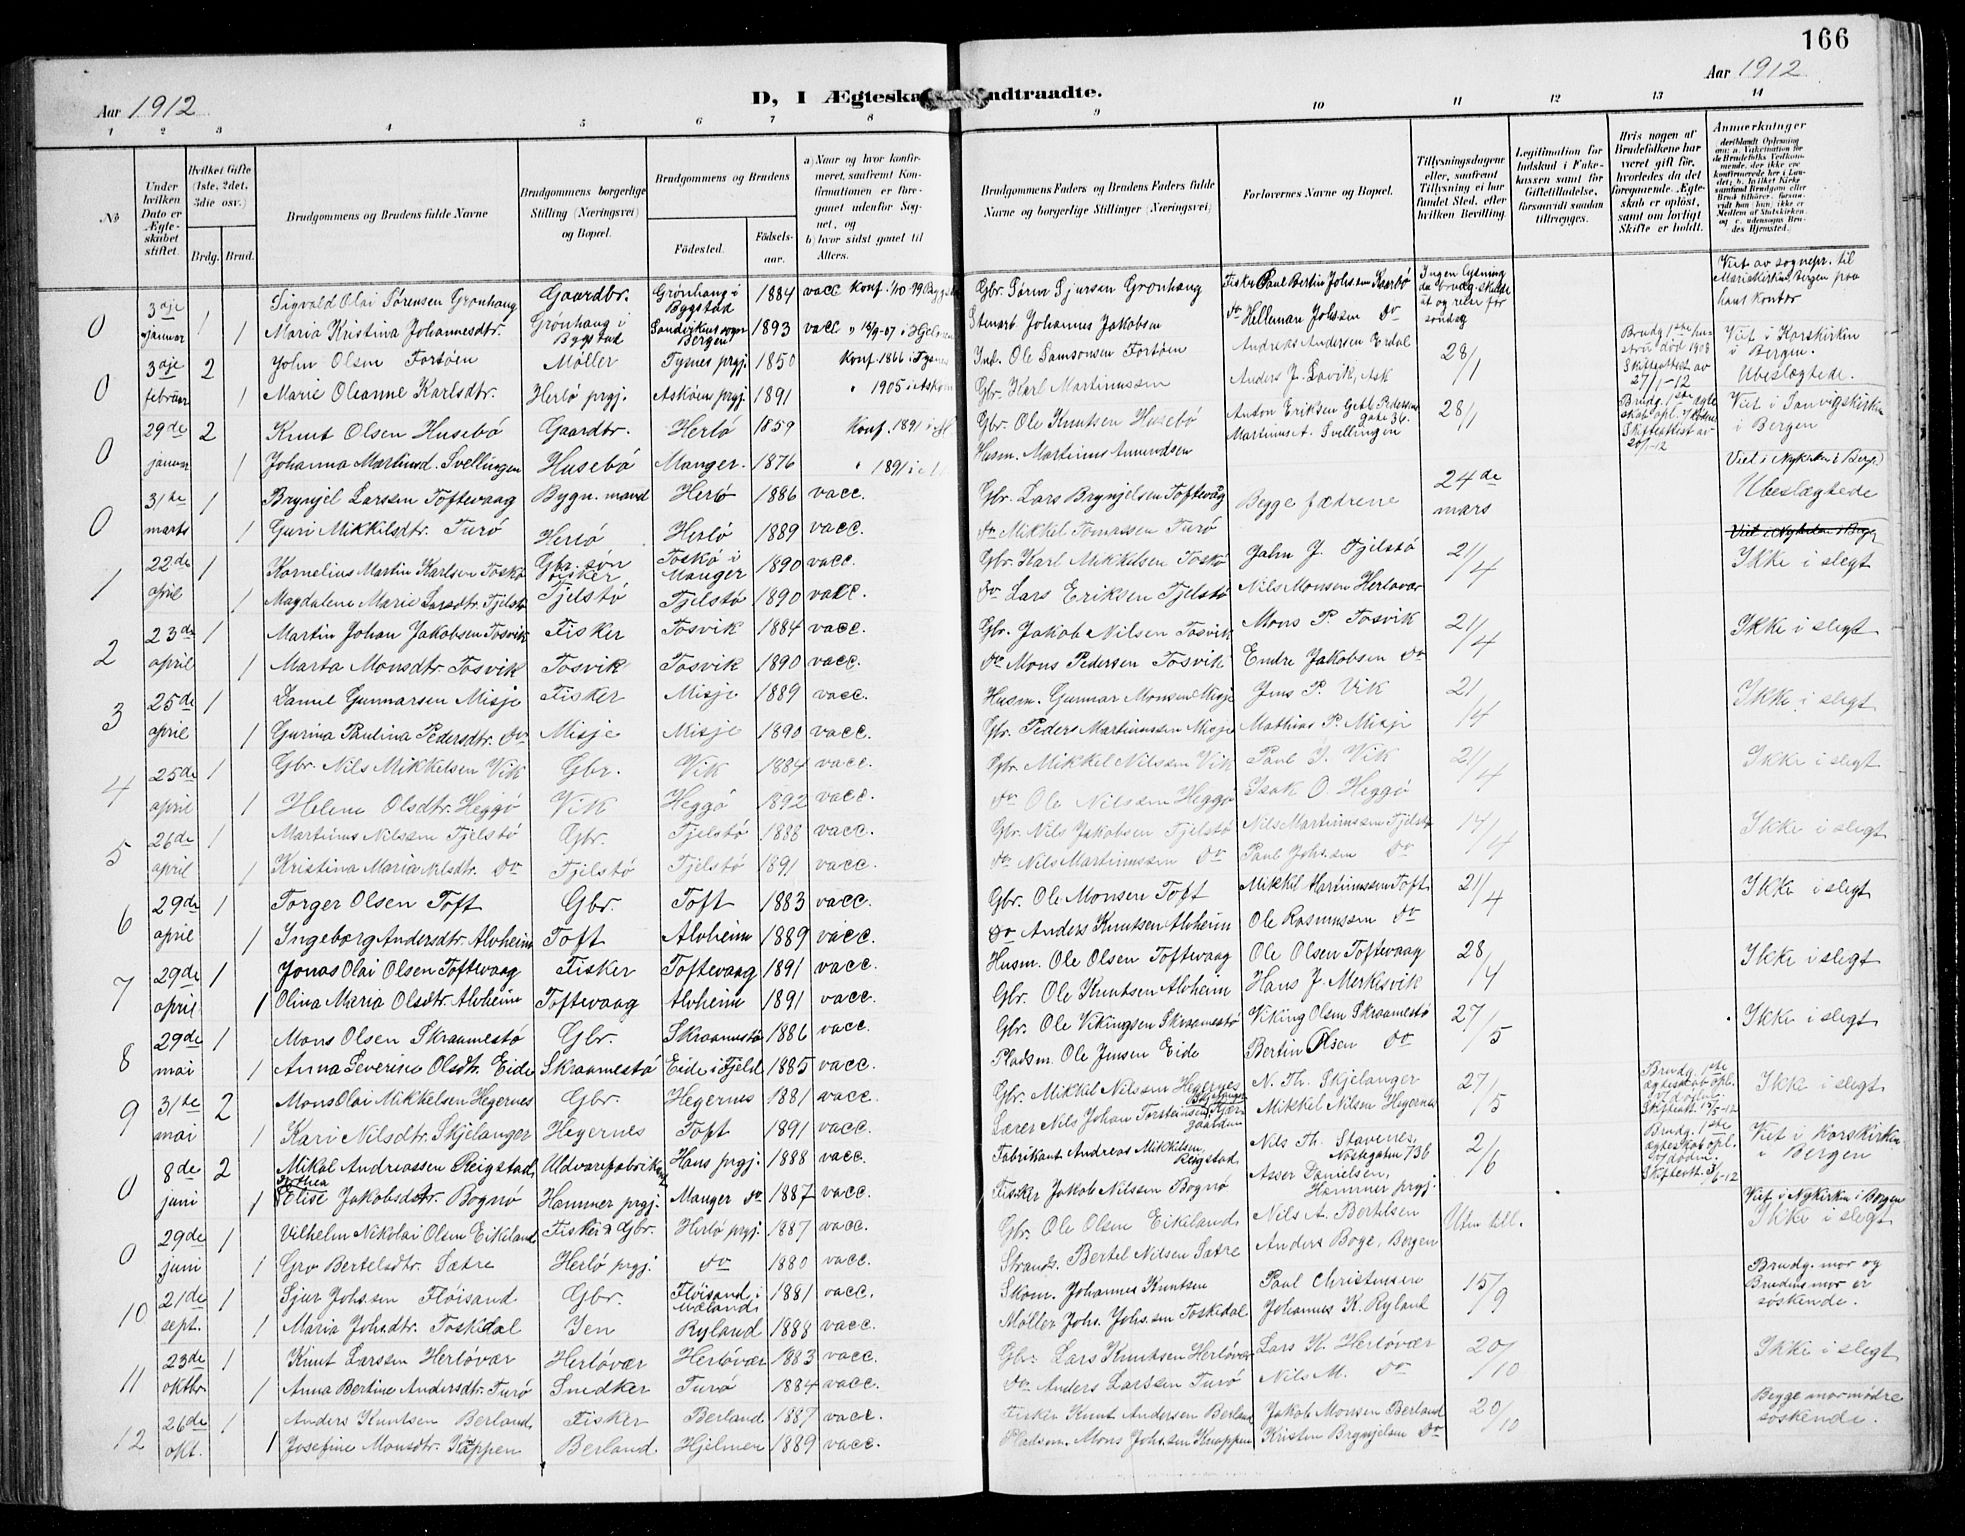 166
Aar 1912
D, I Ægteska ndtraadte.
Aar 1912
1 2 3 4 5 6 7 8 9 10 11 12 13 14
No
Under hvilken Dato er Ægteskabet stiftet.
Hvilket Gifte (1ste, 2det, 3die osv.)
Brdg. Brud.
Brudgommens og Brudens fulde Navne
Brudgommens borgerlige Stilling (Næringsvei) og Bopæl.
Brudgommens og Brudens
Födested. Födsels-aar.
a) Naar og hvor konfirmeret, saafremt Konfirmationen er foregaaet udenfor Sognet, og
b) hvor sidst gaaet til Alters.
Brudgommens Faders og Brudens Faders fulde Navne og borgerlige Stillinger (Næringsvei)
Forlovernes Navne og Bopæl.
Tillysningsdagene eller, saafremt Tillysning ei har fundet Sted, efter hvilken Bevilling.
Legitimation for Indskud i Enkekassen samt for Giftetilladelse, forsaavidt saadan tiltrænges.
Hvis nogen af Brudefolkene har været gift för, hvorledes da det foregaaende Ægteskab er oplöst, samt om lovligt Skifte er holdt.
Anmerkninger
0 3dje 1 Sigvald Olai Sörensen Grönhaug Gaardbr. Grönhaug i Bygstad 1884 vacc Konf. 1/10-99 Gbr. Sören Sjursen Grönhaug Fisker Paul Bertin Johs.sen Ingen lysning da brudg. skulde ut og reise før søndag Viet av sognepr. til Mariakirken, Bergen paa hans kontor
januar 1 Maria Kristina Johannesdtr. Grönhaug i Bygstad Sandvikens sogn Bergen 1893 vacc " 15/9-07 i Stenarb Johannes Jakobsen do Helleman Johssen do
0 3dje 2 John Olsen Fortöen Möller Tysnes prgj. 1850 Konf. 1866 i Tysnes Ind. Ole Samsonsen Fortöen Andreas Andersen Erdal 28/1 Brudg. 1ste hustru död 1908 Skifteattest av 27/1-12 Viet i Korskirken i Bergen. Ubeslægtede.
februar 1 Marie Oleanne Karlsdtr. Herlö prgj. Asköen prgj. 1891 " 1905 i Asköen Gbr. Karl Martinussen Anders J. Lavik, Ask
0 29de 2 Knut Olsen Husebö Gaardbr. Herlö 1859 Konf. 1891 i Gbr. Ole Knutsen Husebö Anton Eriksen Gebl. Pedersens gate 36. 28/1 Brudg. 1ste ægteskab opl. Skifteattest av 20/1-12 Viet i Sanvigskirken i Bergen
januar 1 Johanna Martinsd. Svellingen Husebö Manger. 1876 " 1891 i Husm. Martinus Amundsen Martinus A. Svellingen
0 31te 1 Brynjel Larssen Toftevaag Bygn. mand Herlö 1886 vacc. Gbr. Lars Brynjelsen Toftevåg Begge fædrene 24de mars Viet i Nykirken i Berg. Ubeslægtede
marts 1 Guri Mikkilsdtr. Turö Herlö Herlö 1889 vacc. do Mikkel Tomassen Turö
1 22de 1 Kornelius Martin Karlsen Toskö Gbr. sön fisker Toskö i Manger 1890 vacc. Gbr. Karl Mikkelsen Toskö John J. Fjelstö 21/4 Ikke i slegt
april 1 Magdalene Marie Larsdtr. Fjelstö Fjelstö Fjelstö 1890 vacc. do Lars Eriksen Fjelstö Nils Monsen Herlövær
2 23de 1 Martin Johan Jakobsen Tosvik Fisker Tosvik 1884 vacc. Gbr. Jakob Nilsen Tosvik Mons P. Tosvik 21/4 Ikke i slegt
april 1 Marta Monsdtr. Tosvik Tosvik Tosvik 1890 vacc. do Mons Pedersen Tosvik Endre Jakobsen do
3 25de 1 Daniel Gunnarsen Misje Fisker Misje 1889 vacc. Husm. Gunnar Monsen Misje Jens P. Vik 21/4 Ikke i slegt
april 1 Gurina Paulina Pedersdtr. do Misje Misje 1890 vacc. Gbr. Peder Martinussen Misje Mathias P. Misje
4 25de 1 Gbr. Nils Mikkelsen Vik Gbr. Vik 1884 vacc. Gbr. Mikkel Nilssen Vik Paul J. Vik 21/4 Ikke i slegt
april 1 Helene Olsdtr. Heggö Vik Heggö 1892 vacc. do Ole Nilssen Heggö Isak O. Heggö
5 26de 1 Martinus Nilssen Fjelstö Gbr. Fjelstö 1888 vacc. Gbr. Nils Jakobsen Fjelstö Nils Martinussen Fjelstö 14/4 Ikke i slegt
april 1 Kristina Maria Nilsdtr. do Fjelstö Fjelstö 1891 vacc. do Nils Martinussen do Paul Johs.sen do
6 29de 1 Torger Olsen Toft Gbr. Toft 1883 vacc. Gbr. Ole Monsen Toft Mikkel Martinussen Toft 21/4 Ikke i slegt
april 1 Ingeborg Andersdtr. Alvheim Toft Alvheim 1889 vacc. do Anders Knutsen Alvheim Ole Rasmussen do
7 29de 1 Jonas Olai Olsen Toftevaag Fisker Toftevaag 1891 vacc. Husm. Ole Olsen Toftevaag Ole Olsen Toftevaag 28/4 Ikke i slegt
april 1 Olina Maria Olsdtr. Alvheim Toftevaag Alvheim 1891 vacc. Gbr. Ole Knutsen Alvheim Hans J. Merkisvik
8 29de 1 Mons Olsen Skraamestö Gbr. Skraamestö 1886 vacc. Gbr. Ole Vikingsen Skraamestö Viking Olsen Skraamestö 27/5 Ikke i slegt
mai 1 Anna Severine Olsdtr. Eide Skraamestö Eide i Fjeld 1885 vacc. Pladsm. Ole Jensen Eide Bertin Olsen do
9 31te 2 Mons Olai Mikkelsen Hegernes Gbr. Hegernes 1881 vacc. Gbr. Mikkel Nilssen Hegernes N. Th. Skjelanger 27/5 Brudg. 1ste ægteskab opl. v/ döden. Skifteatt. 15/5-12 Ikke i slegt
mai 1 Kari Nilsdtr. Skjelanger Hegernes Toft 1891 vacc. Lærer Nils Johan Torsteinsen Mikkel Nilsen Hegernes
0 8de 2 Mikal Andreassen Reigstad Uldvarefabrikant Haus prgj. 1888 vacc. Fabrikant Andreas Mikkelsen Reigstad Nils Th. Stavenes, Nöstegaten 736 2/6 Brudg. 1ste ægteskab opl. v/ döden. Skifteatt. 3/6-12 Viet i Korskirken i Bergen
juni 1 Elise Dorthea Jakobsdtr. Bognö Hammer prgj. Manger do 1887 vacc. Fisker Jakob Nilssen Bognö Asser Danielsen, Hammer prgj.
0 29de 1 Vilhelm Nikolai Olsen Eikeland Fisker & Gbr. Herlö prgj. 1887 vacc. Gbr. Ole Olsen Eikeland Nils A. Bertelsen Uten till. Viet i Nykirken i Bergen Ikke i slegt
juni 1 Gro Bertelsdtr. Sætre Herlö prgj. do 1880 vacc. Strands. Bertel Nilsen Sætre Anders Boge, Bergen
10 21de 1 Sjur Johs.sen Flöisand Gbr. Flöisand i Mæland 1881 vacc. Skom. Johannes Knutsen Paul Christensen 15/9 Brudg. mor og Brudens mor er søskende.
sept. 1 Maria Johsdtr. Toskedal Ryland 1888 vacc. Möller Johs. Johs.sen Toskedal Johannes K. Ryland
11 23de 1 Knut Larssen Herlövær Herlövær Herlövær 1883 vacc. Gbr. Lars Knutsen Herlövær Lars K. Herlövær 20/10 Ikke i slegt
oktbr. 1 Anna Bertine Andersdtr. Turö Snedker Turö 1884 vacc. do Anders Larssen Turö Nils M. do
12 26de 1 Anders Knutsen Berland Fisker Berland 1887 vacc. Fisker Knut Andersen Berland Jakob Monsen Berland 20/10 Begges mormødre søskende.
okt. 1 Josefine Monsdtr. Knappen Berland Hjelmen 1889 vacc. Pladsm. Mons Johs.sen Knappen Kristen Brynjelsen do